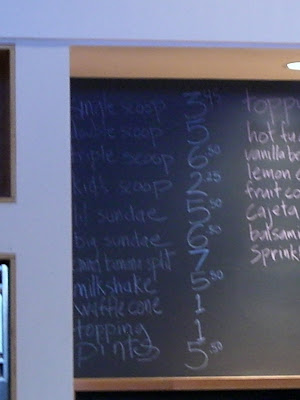 single scoop 3.45
double scoop 5
triple scoop 6.50
kid's scoop 2.25
lil sundae 5.50
big sundae 6.50
banana split 7
milkshake 5.50
waffle cone 1
topping 1
pints 5.50
topp
hot fu
vanilla be
lemon c
fruit co
cajeta
balsami
Sprink